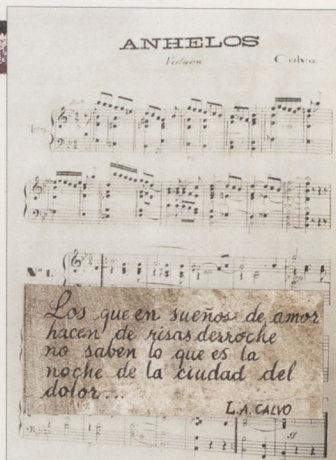 ANHELOS
Valses
Calvo.
Nº 1.
Los que en sueños de amor
hacen de risas derroche
no saben lo que es la
noche de la ciudad del
dolor...
L.A. CALVO